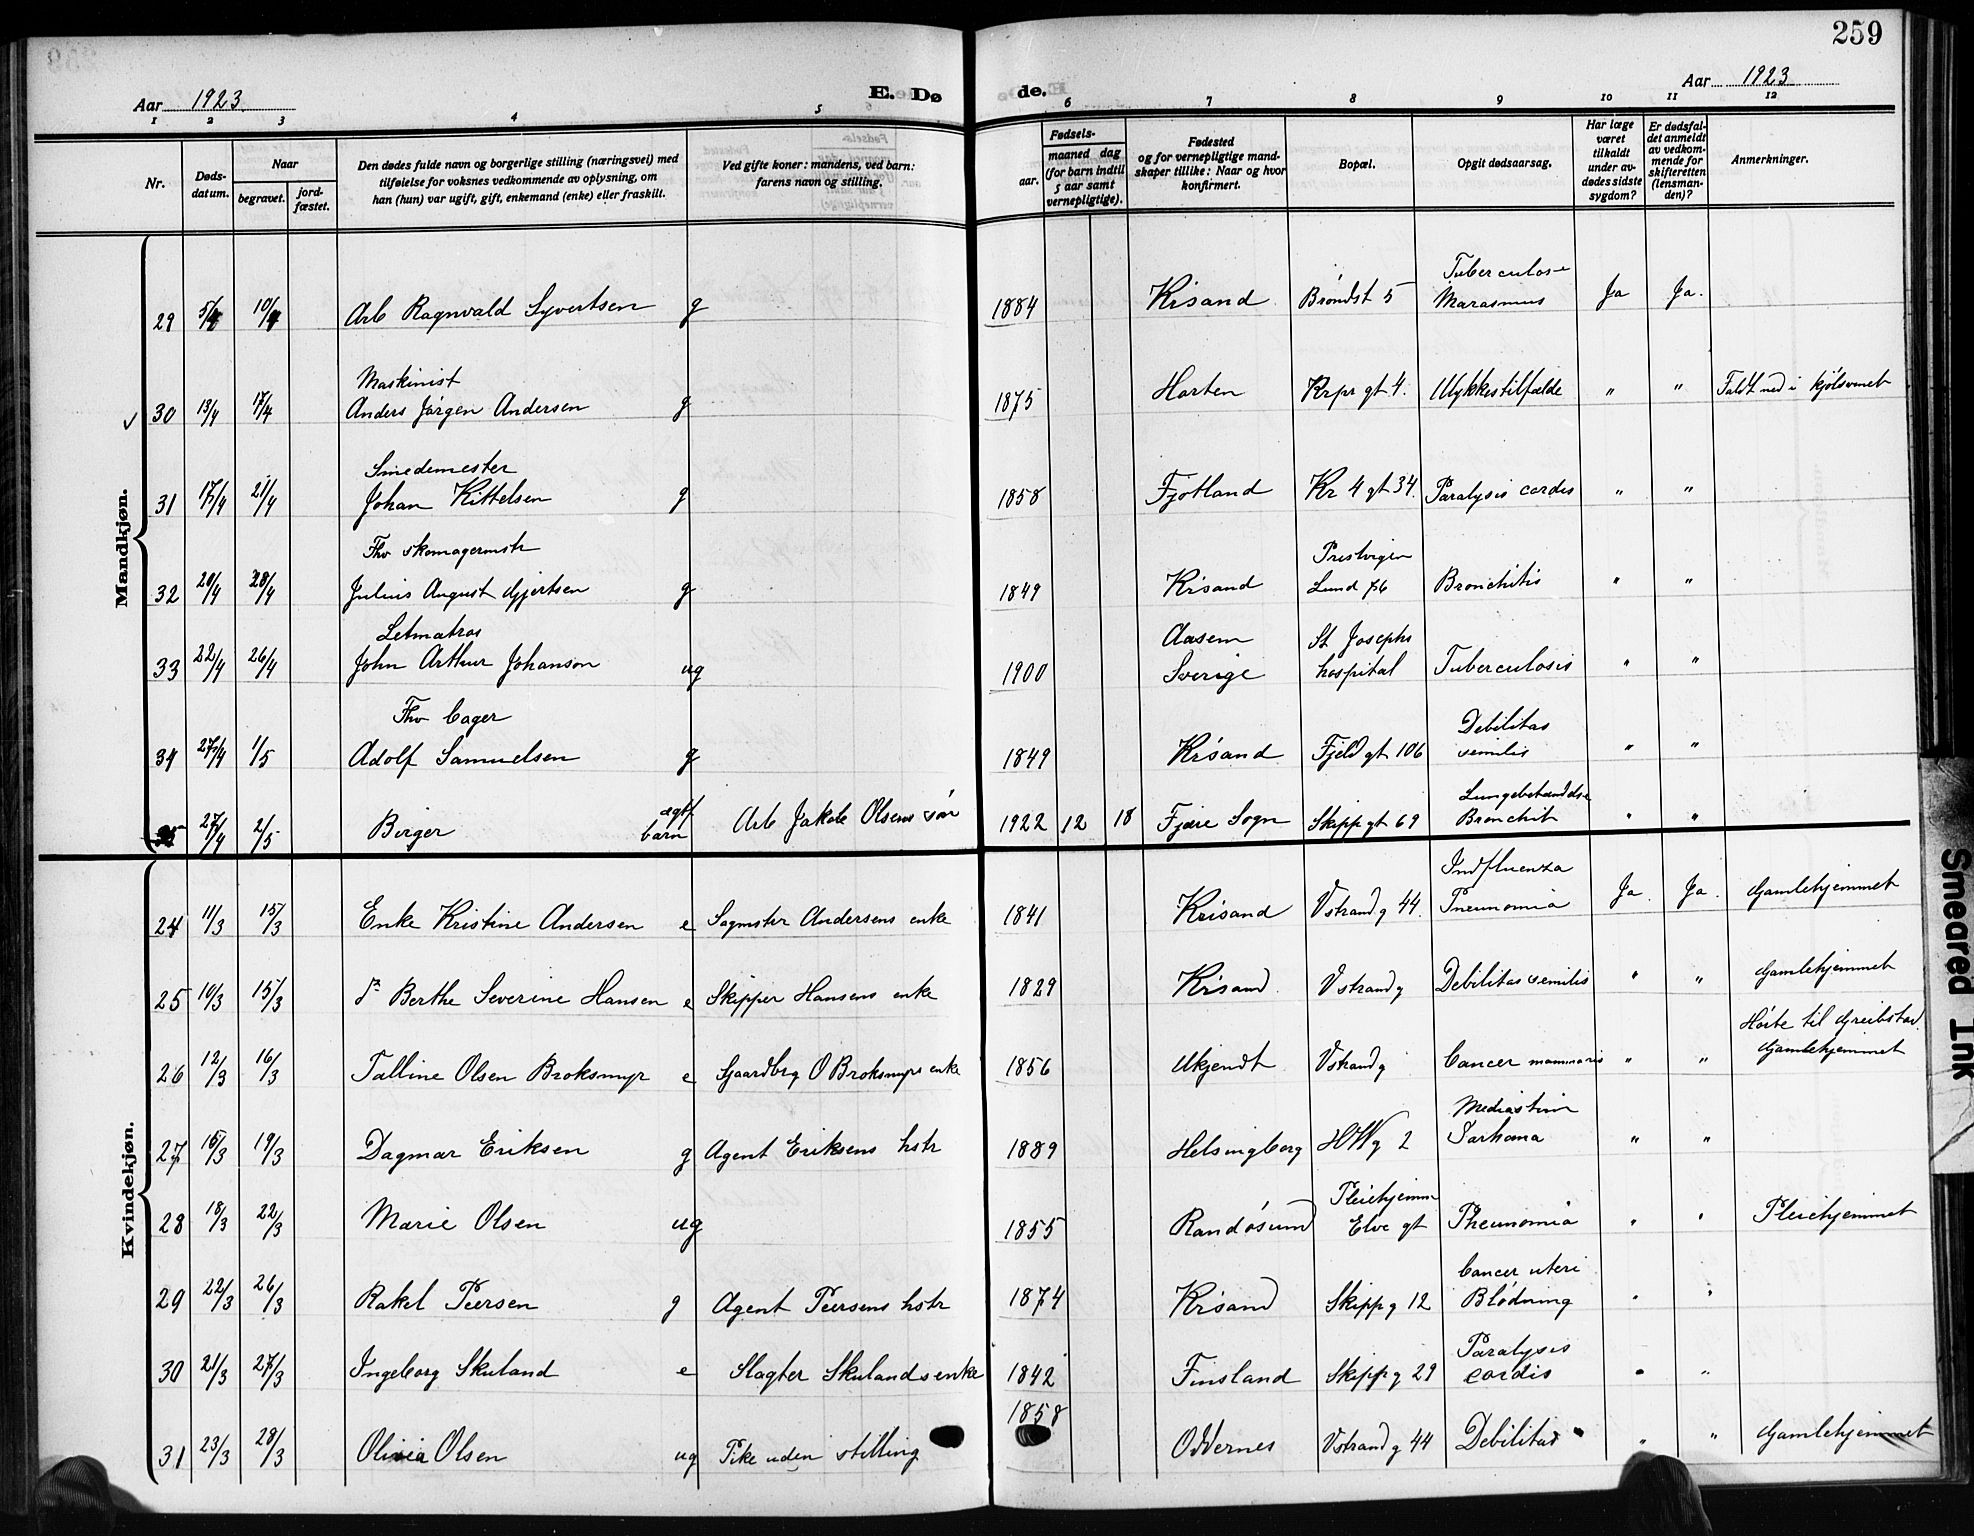 259
Aar 1923
E. Dø
de.
Aar 1923
1 2 3 4 5 6 7 8 9 10 11 12
Nr.
Døds-
datum.
Naar
begravet.
jord-
fæstet.
Den dødes fulde navn og borgerlige stilling (næringsvei) med
tilføielse for voksnes vedkommende av oplysning, om
han (hun) var ugift, gift, enkemand (enke) eller fraskilt.
Ved gifte koner: mandens, ved barn:
farens navn og stilling.
Fødsels-
aar.
maaned dag
(for barn indtil
5 aar samt
vernepligtige).
Fødested
og for vernepligtige mand-
skaper tillike: Naar og hvor
konfirmert.
Bopæl.
Opgit dødsaarsag.
Har læge
været
tilkaldt
under av-
dødes sidste
sygdom?
Er dødsfal-
det anmeldt
av vedkom-
mende for
skifteretten
(lensman-
den)?
Anmerkninger.
Mandkjøn.
Tuberculose
29 5/4 10/4 Arb Ragnvald Syvertsen g 1884 Krisand Brøndst 5 Marasmus Ja Ja.
Maskinist
30 13/4 17/4 Anders Jørgen Andersen g 1875 Horten Krpr gt 4. Ulykkestilfælde " " Faldt ned i kjølsvinet
Smedemester
31 17/4 21/4 Johan Kittelsen g 1858 Fjotland Kr 4 gt 34. Paralysis cordis " "
Fhv skomagermstr Prestvigen
32 20/4 28/4 Julius August Gjertsen g 1849 Krisand Lund 76 Bronchitis " "
Letmatros Aasem St Josephs
33 22/4 26/4 John Arthur Johanson ug 1900 Sverige hospital Tuberculosis " "
Fhv bager Debilitas
34 27/4 1/5 Adolf Samuelsen g 1849 Krisand Fjeld gt 106 senilis " "
ægtf Lungebetændelse
35 27/4 2/5 Birger barn Arb Jakob Olsens søn 1922 12 18 Fjære Sogn Skippgt 69 Bronchit " "
Kvindekjøn.
Indfluenza
24 11/3 15/3 Enke Kristine Andersen e Sagmstr Andersens enke 1841 Krisand Vstrand g 44. Pneumonia Ja. Ja. Gamlehjemmet
25 10/3 15/3 do Berthe Severine Hansen e Skipper Hansens enke 1829 Krisand. Vstrand g Debilitas senilis " " Gamlehjemmet
Hørte til Greibstad
26 12/3 16/3 Talline Olsen Broksmyr e Gaardbrg O Broksmyrs enke 1856 Ukjendt Vstrand g Cancer mammaris " " Gamlehjemmet
Mediastin
27 15/3 19/3 Dagmar Eriksen g Agent Eriksens hstr 1889 Helsingborg HWg 2 Sarkoma " "
Pleiehjemm
28 18/3 22/3 Marie Olsen ug 1855 Randøsund Elve gt Pneumonia " " Pleiehjemmet
Cancer uteri
29 22/3 26/3 Rakel Peersen g Agent Peersens hstr 1874 Krisand Skippg 12 Blødning " "
Paralysis
30 21/3 27/3 Ingeborg Skuland e Slagter Skulands enke 1842 Finsland Skippg 29 cordis " "
1858
31 23/3 28/3 Olivia Olsen ug Pike uden stilling Oddernes Vstrand g 44 Debilitas " " Gamlehjemmet
Smeared Ink